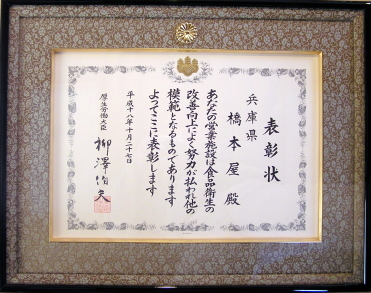 表彰状
兵庫県
橋本屋殿
あなたの営業施設は食品衛生の
改善向上によく努力が払われ他の
模範となるものであります
よってここに表彰します
平成十八年十月二十七日
厚生労働大臣
柳澤伯夫